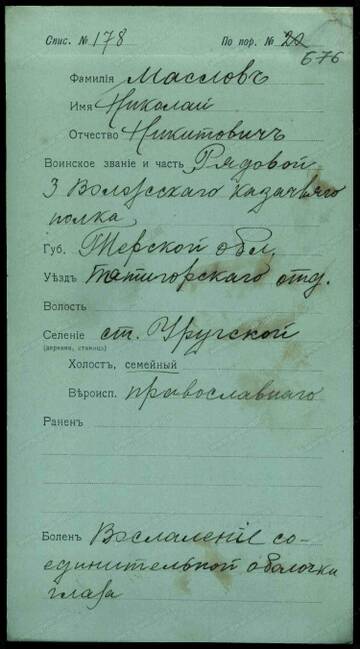 Спис. № 178 По пор. № 22
676
Фамилія Масловъ
Имя Николай
Отчество Никитовичъ
Воинское званіе и часть Рядовой
3 Волгскаго казачьяго
полка
Губ. Терской обл.
Уѣздъ Пятигорскаго отд.
Волость
Селеніе ст. Уругской
(деревня, станица)
Холостъ, семейный
Вѣроисп. православнаго
Раненъ
Боленъ Воспаленіе со-
единительной оболочки
глаза